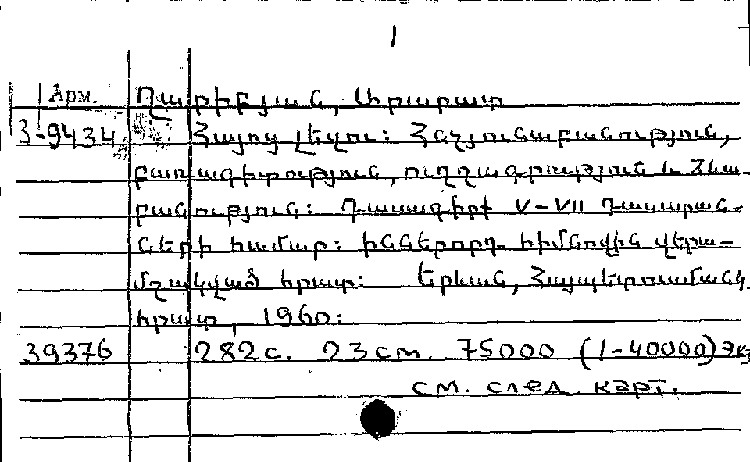 1
Арм. Ղարիբյան, Արարատ
3-9434 Հայոց լեզու: Հնչյունաբանություն,
բառագիտություն, ուղղագրություն և ձևա-
բանություն: Դասագիրք V-VII դասարան-
ների համար: Իններորդ հիմնովին վերա-
մշակված հրատ: Երևան, Հայպետուսմանկ
հրատ, 1960:
39376 282 с. 23 см. 75000 (1-40000) эк
см. след. карт.